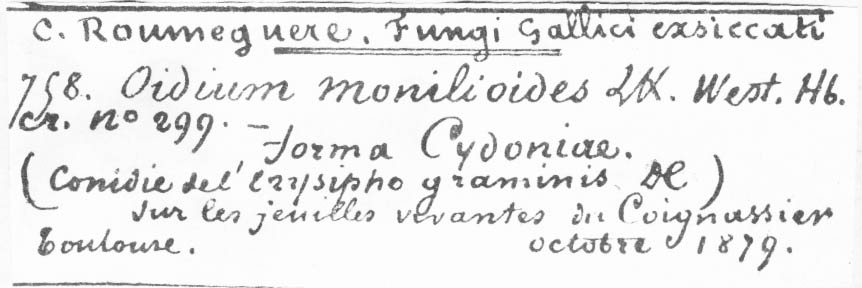 C. Roumeguere. Fungi Gallici exsiccati
758. Oidium monilioides LK. West. Hb.
cr. no 299. –
forma Cydoniae.
(Conidie de l'Erysiphe graminis DC)
sur les feuilles vivantes du Coignassier
Toulouse. octobre 1879.